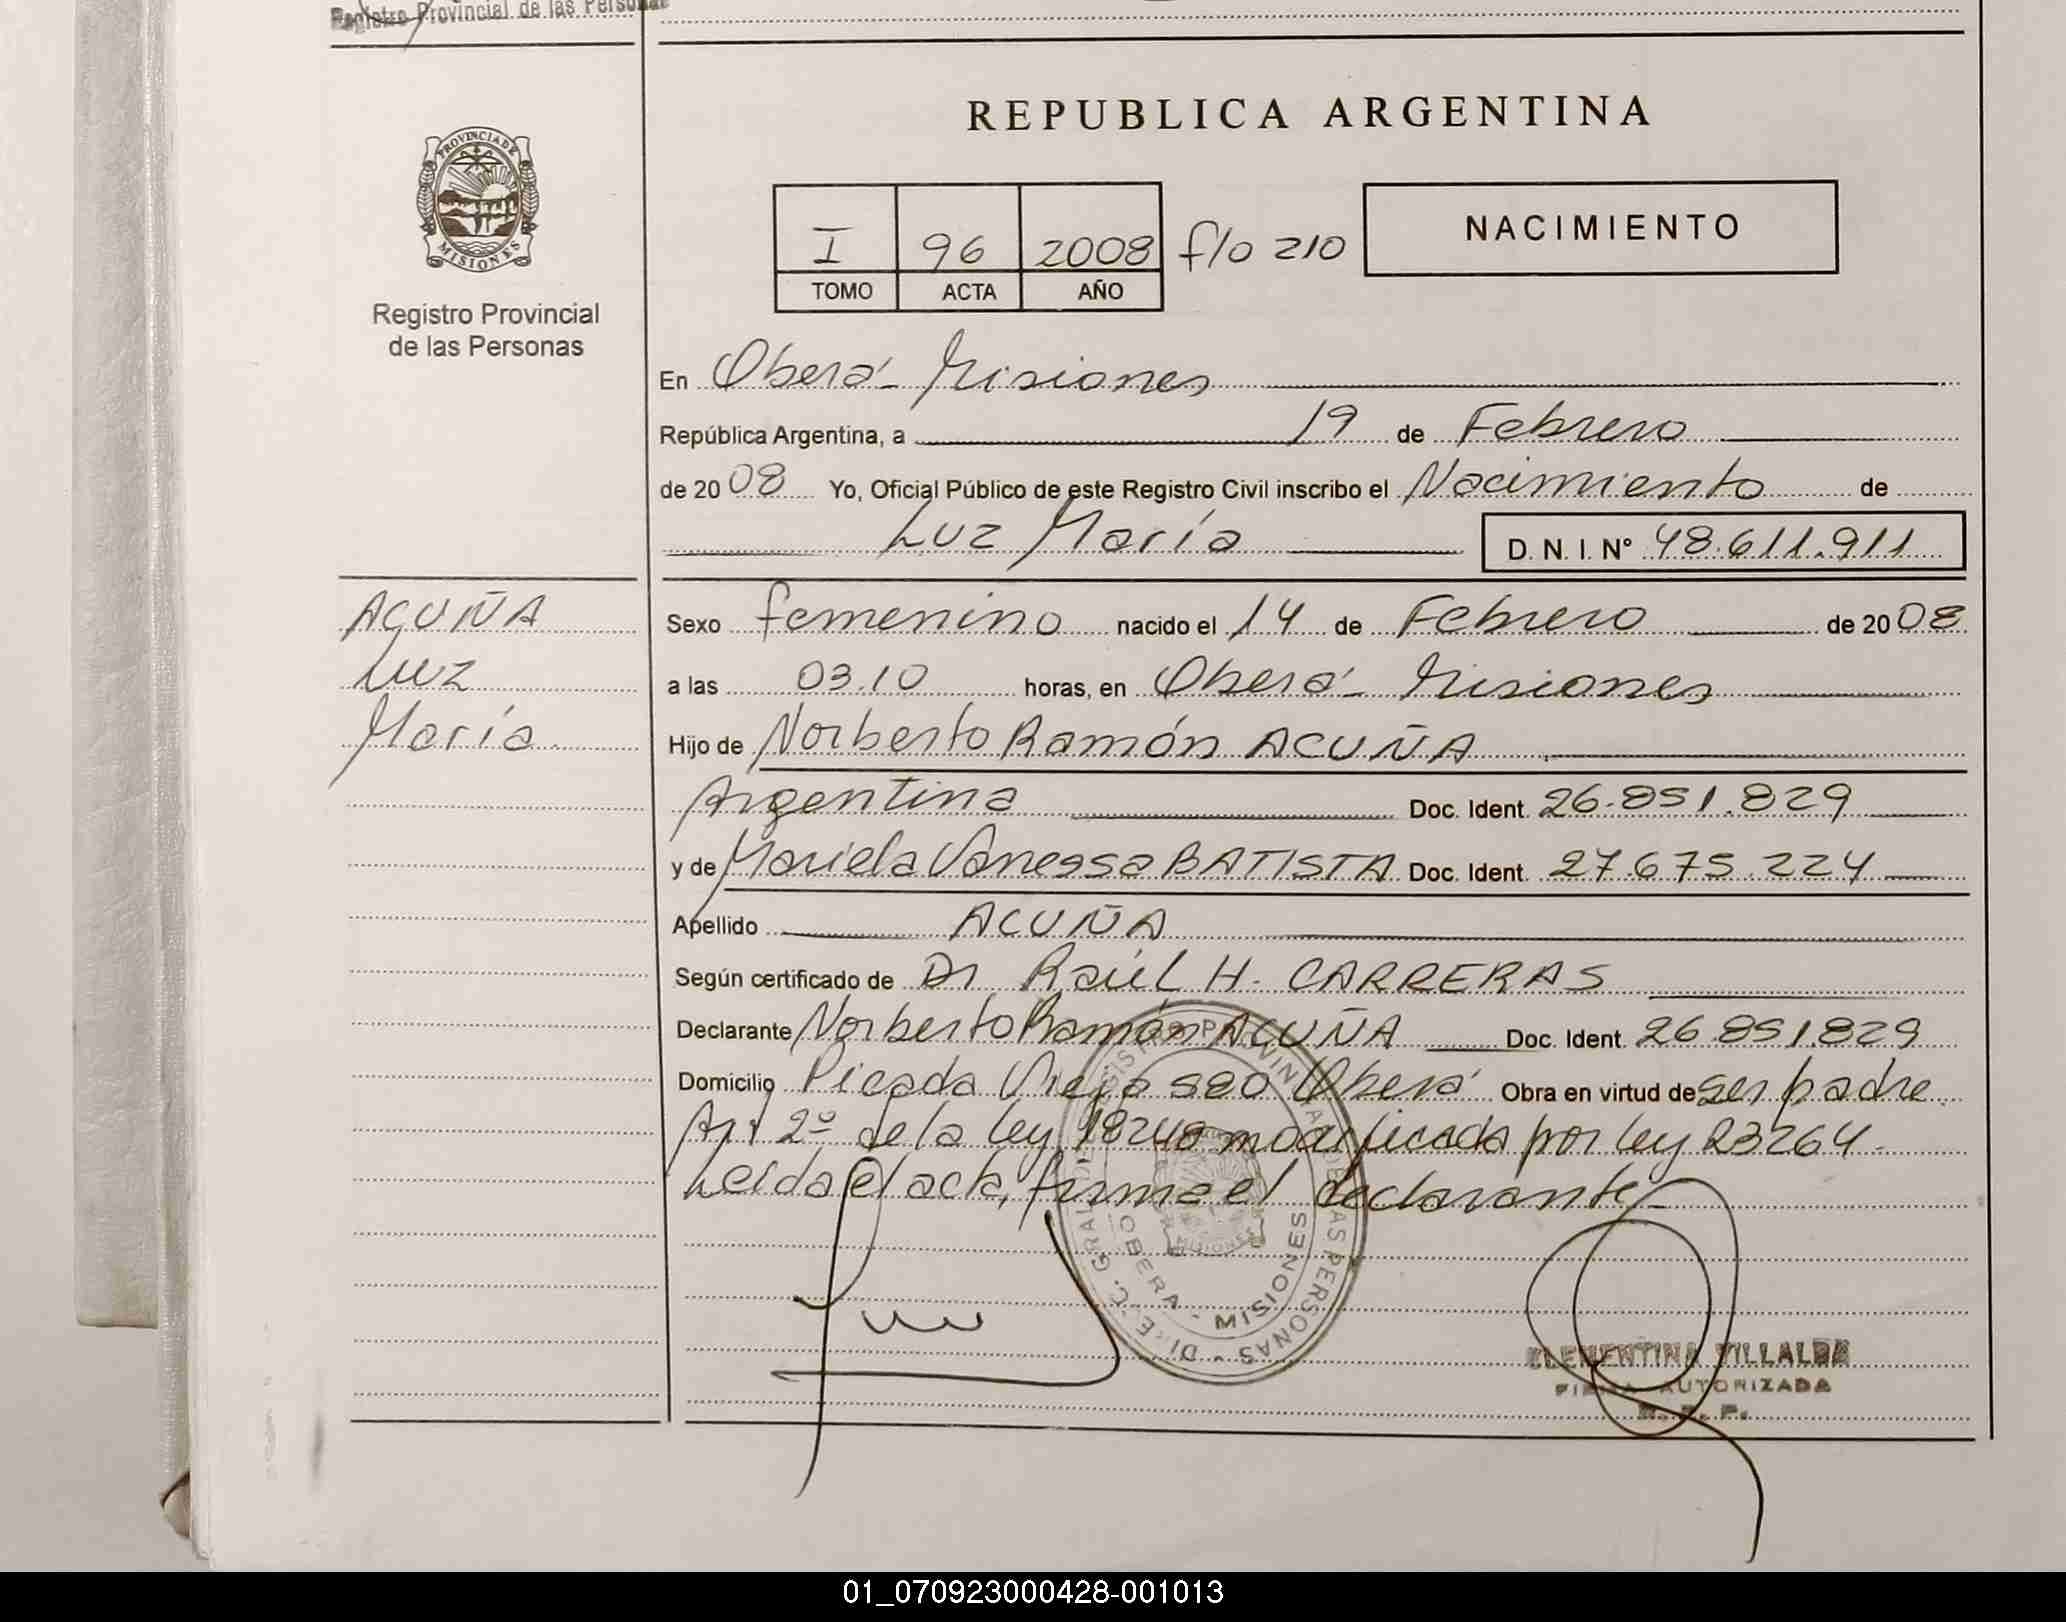 Registro Provincial de las Personas
REPUBLICA ARGENTINA
PROVINCIA DE
MISIONES
Registro Provincial
de las Personas
I 96 2008 f/o 210
TOMO ACTA AÑO
NACIMIENTO
En Oberá - Misiones
República Argentina, a 19 de Febrero
de 2008 Yo, Oficial Público de este Registro Civil inscribo el Nacimiento de
Luz María D. N. I. Nº 48.611.911
ACUÑA
Luz
María
Sexo femenino nacido el 14 de Febrero de 2008
a las 03.10 horas, en Oberá - Misiones
Hijo de Norberto Ramón ACUÑA
Argentina Doc. Ident. 26.851.829
y de Mariela Vanessa BATISTA Doc. Ident. 27.675.224
Apellido ACUÑA
Según certificado de Dr Raúl H. CARRERAS
Declarante Norberto Ramón ACUÑA Doc. Ident. 26.851.829
Domicilio Picada Vieja 980 Oberá Obra en virtud de ser padre.
Art 2º de la ley 18248 modificada por ley 23264-
Leída el acta, firma el declarante-
OBERA - MISIONES
CLEMENTINA VILLALBA
FIRMA AUTORIZADA
01_070923000428-001013